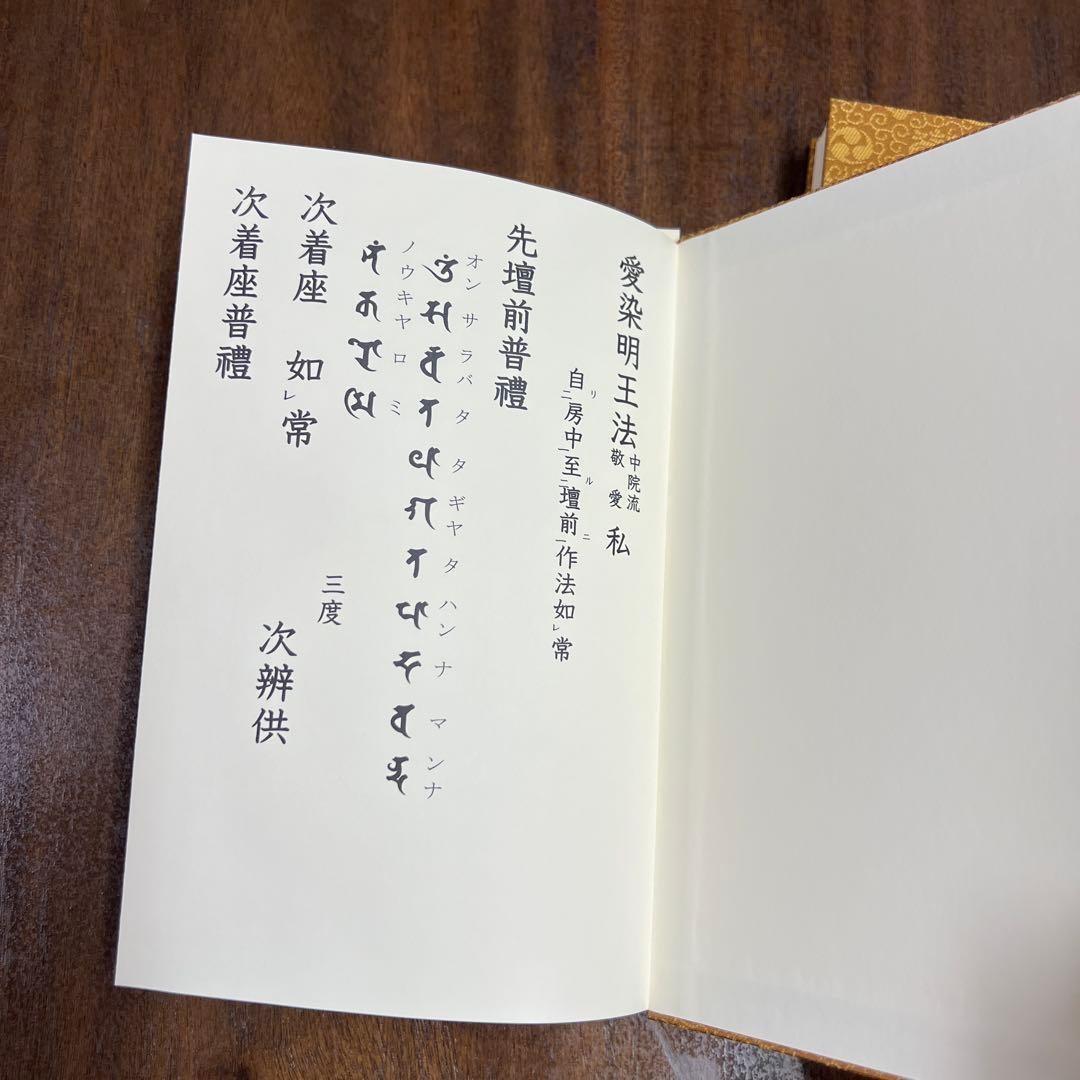 愛染明王法 中院流 敬愛 私
自リ二房中一至ル二壇前ニ一作法如レ常
先壇前普禮
オン サラバタ タギヤタ ハンナ マンナ
ノウキヤロミ 三度
次着座 如レ常 次辨供
次着座普禮